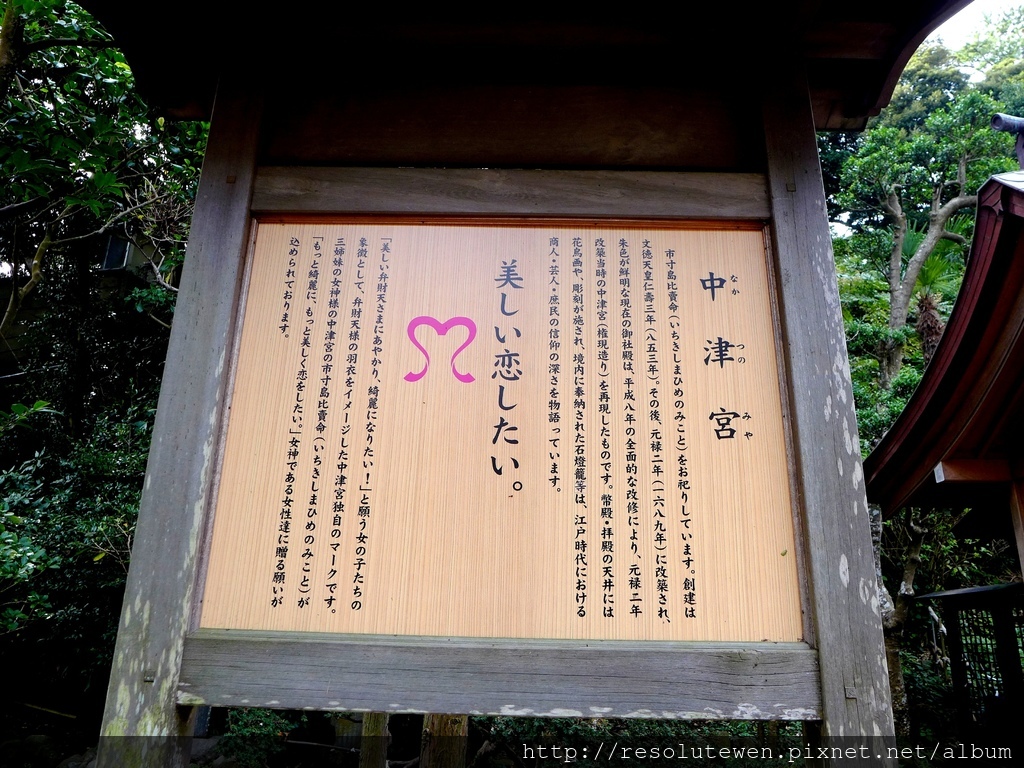 中津宮
なか つの みや
市寸島比賣命(いちきしまひめのみこと)をお祀りしています。創建は
文徳天皇仁壽三年(八五三年)。その後、元禄二年(一六八九年)に改築され、
朱色が鮮明な現在の御社殿は、平成八年の全面的な改修により、元禄二年
改築当時の中津宮(権現造り)を再現したものです。幣殿・拝殿の天井には
花鳥画や、彫刻が施され、境内に奉納された石燈籠等は、江戸時代における
商人・芸人・庶民の信仰の深さを物語っています。
美しい恋したい。
「美しい弁財天さまにあやかり、綺麗になりたい!」と願う女の子たちの
象徴として、弁財天様の羽衣をイメージした中津宮独自のマークです。
三姉妹の女神様の中津宮の市寸島比賣命(いちきしまひめのみこと)が
「もっと綺麗に、もっと美しく恋をしたい。」女神である女性達に贈る願いが
込められております。
http://resolutewen.pixnet.net/album